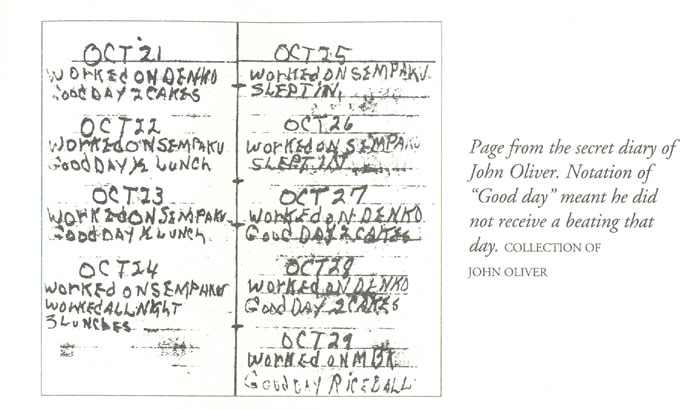 OCT 21
WORKED ON DENKO
GOOD DAY 2 CAKES
OCT 22
WORKED ON SEMPAKU
GOOD DAY ½ LUNCH
OCT 23
WORKED ON SEMPAKU
GOOD DAY ½ LUNCH
OCT 24
WORKED ON SEMPAKU
WORKED ALL NIGHT
3 LUNCHES
OCT 25
WORKED ON SEMPAKU
SLEPT IN
OCT 26
WORKED ON SEMPAKU
SLEPT IN
OCT 27
WORKED ON DENKO
GOOD DAY 2 CAKES
OCT 28
WORKED ON DENKO
GOOD DAY 2 CAKES
OCT 29
WORKED ON
GOOD DAY RICE BALL
Page from the secret diary of
John Oliver. Notation of
“Good day” meant he did
not receive a beating that
day. COLLECTION OF
JOHN OLIVER